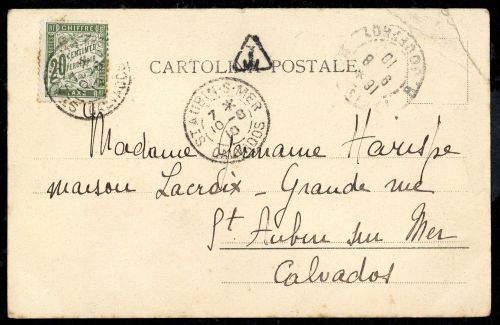 CHIFFRE
20
CENTIMES
TAXE
T
CARTOLINA POSTALE
ST AUBIN-S-MER
7 *
10 - 8
10
CALVADOS
Madame Germaine Harispe
maison Lacroix - Grande rue
St Aubin sur Mer
Calvados